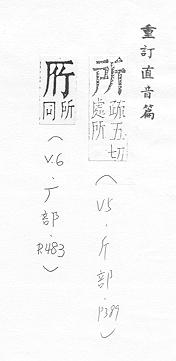 重訂直音篇
所 疏五切 處所
(V5.斤部.P389)
𠩄 所同
(V.6.厂部.P.483)